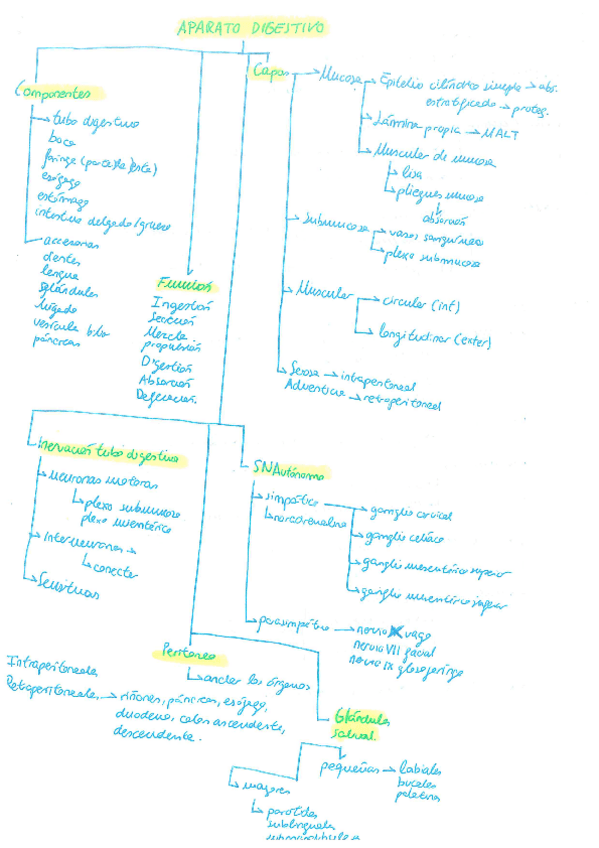 APARATO DIGESTIVO
Componentes
→ tubo digestivo
boca
faringe (parte de este)
esófago
estómago
intestino delgado/grueso
→ accesorios
dientes
lengua
glándulas
hígado
vesícula biliar
páncreas
Función
Ingestión
Secreción
Mezcla
propulsión
Digestión
Absorción
Defecación.
Capas
→ Mucosa → Epitelio cilíndrico simple → abs.
estratificado → proteg.
→ Lámina propia → MALT
→ Muscular de mucosa
→ lisa
→ pliegues mucosa
↓
absorción
→ Submucosa → vasos sanguíneos
→ plexo submucosa
→ Muscular → circular (int)
→ longitudinal (exter)
→ Serosa → intraperitoneal
Adventicia → retroperitoneal
Inervación tubo digestivo
→ neuronas motoras
→ plexo submucoso
plexo mientérico
→ Interneuronas →
→ conectar
→ Sensitivas
SNAutónomo
→ simpático
→ noradrenalina
→ ganglio cervical
→ ganglio celíaco
→ ganglio mesentérico superior
→ ganglio mesentérico inferior
→ parasimpático → nervio X vago
nervio VII facial
nervio IX glosofaríngeo
Peritoneo
→ anclar los órganos
Intraperitoneales
Retroperitoneales → riñones, páncreas, esófago,
duodeno, colon ascendente,
descendente.
Glándulas
salival.
pequeñas → labiales
bucales
palatinas
→ mayores
→ parótidas
sublinguales
submandibulares